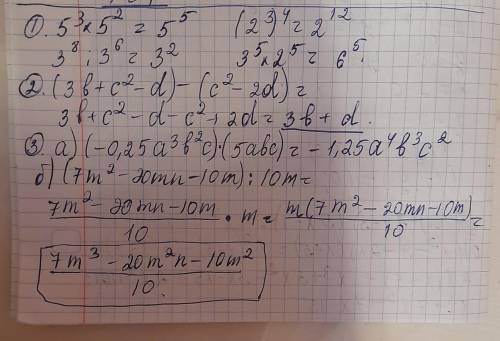 ①. 5³ × 5² = 5⁵ (2³)⁴ = 2¹²
3⁸ : 3⁶ = 3² 3⁵ × 2⁵ = 6⁵.
②. (3b + c² - d) - (c² - 2d) =
3b + c² - d - c² + 2d = 3b + d.
③. а) (-0,25a³b²c)·(5abc) = -1,25a⁴b³c²
б) (7m² - 20mn - 10m) : 10m =
(7m² - 20mn - 10m)/10 · m = m(7m² - 20mn - 10m)/10 =
(7m³ - 20m²n - 10m²)/10.